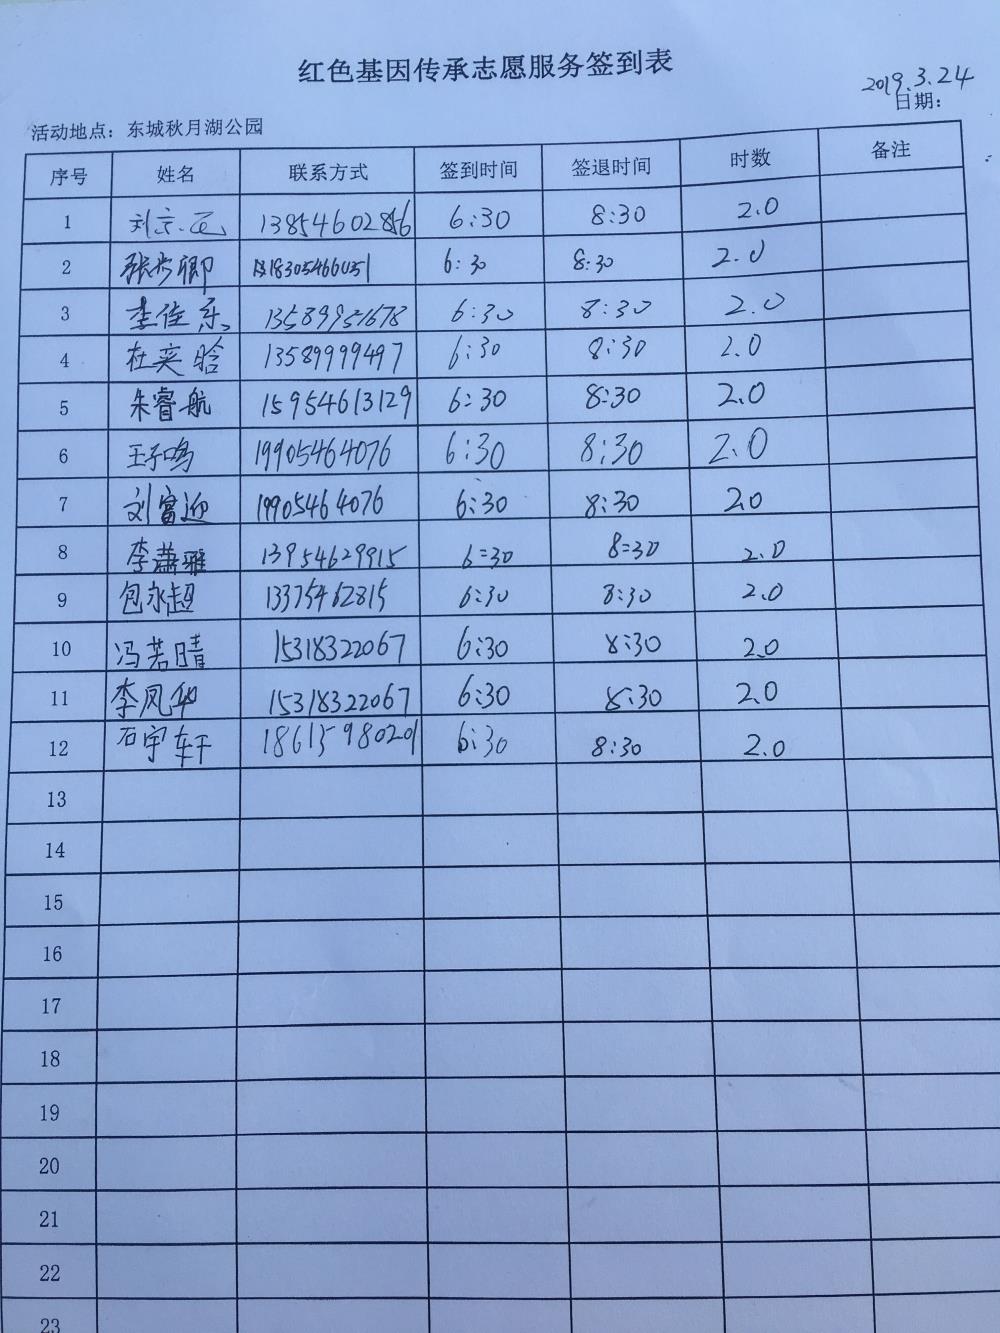 红色基因传承志愿服务签到表
2019.3.24
日期：
活动地点：东城秋月湖公园
序号 姓名 联系方式 签到时间 签退时间 时数 备注
1 刘京 13854602856 6:30 8:30 2.0
2 张步卿 18305466051 6:30 8:30 2.0
3 李佳乐 13589951678 6:30 8:30 2.0
4 杜奕晗 13589999497 6:30 8:30 2.0
5 朱睿航 15954613129 6:30 8:30 2.0
6 王子鸣 19905464076 6:30 8:30 2.0
7 刘富迎 19905464076 6:30 8:30 2.0
8 李潇雅 13954629915 6:30 8:30 2.0
9 包永超 13375462815 6:30 8:30 2.0
10 冯若晴 15318322067 6:30 8:30 2.0
11 李凤华 15318322067 6:30 8:30 2.0
12 石宇轩 18615980201 6:30 8:30 2.0
13
14
15
16
17
18
19
20
21
22
23